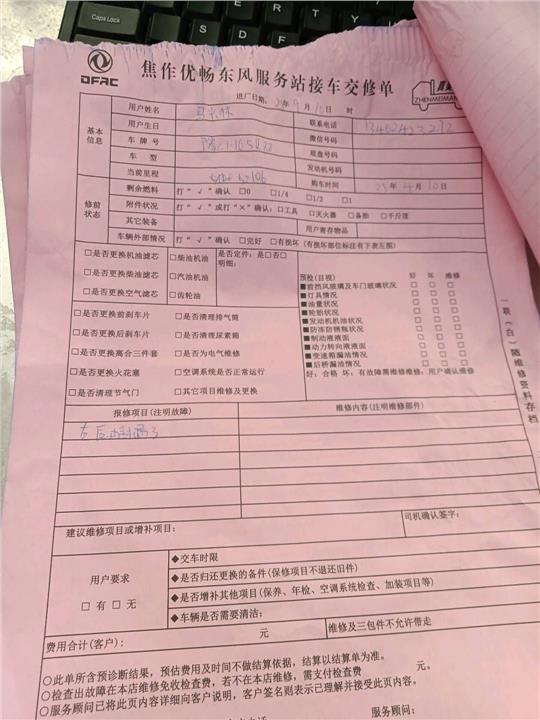 Caps Lock
E R T Y
S D F
DFAC
焦作优畅东风服务站接车交修单
ZHENMEIMAN
进厂日期: 25年 9月 10日 时
基本信息
用户姓名
联系电话
用户生日
微信号码
车牌号
底盘号码
车型
发动机号码
当前里程
购车时间 25年 4月 10日
修前状态
剩余燃料 打“√”确认 □0 □1/4 □1/2 □1
附件状况 打“√或打“×”确认:□工具 □灭火器 □备胎 □千斤顶
其它装备
用户寄存物品
车辆外部情况 打“√”确认 □完好 □有损坏(有损部位标注有下表左图)
□是否更换机油滤芯 □柴油机油 是否定件:是□否□
□是否更换柴油滤芯 □汽油机油 明细:
□是否更换空气滤芯 □齿轮油
预检(目视) 好 坏 维修
■前挡风玻璃及车门玻璃状况 □ □ □
■灯具情况 □ □ □
■油量状况 □ □ □
■轮胎状况 □ □ □
■发动机机油状况 □ □ □
■防冻防锈瓶状况 □ □ □
■制动液液面 □ □ □
■动力转向液液面 □ □ □
■变速箱漏油情况 □ □ □
■后桥漏油情况 □ □ □
好:合格 坏:有故障需维修维修:用户确认维修
□是否更换前刹车片 □是否清理排气筒
□是否更换后刹车片 □是否清理尿素箱
□是否更换离合三件套 □是否为电气维修
□是否更换火花塞 □空调系统是否正常运行
□是否清理节气门 □其它项目维修及更换
一联(白)随维修资料存档
报修项目(注明故障) 维修内容(注明维修部件)
建议维修项目或增补项目:
司机确认签字:
用户要求
□ 有 □ 无
◆交车时限
◆是否归还更换的备件(保修项目不退还旧件)
◆是否增补其他项目(保养、年检、空调系统检查、加装项目等)
◆车辆是否需要清洁:
费用合计(客户): 元 维修及三包件不允许带走
○此单所含预诊断结果,预估费用及时间不做结算依据,结算以结算单为准。
○检查出故障在本店维修免收检查费,若不在本店维修,需支付检查费 元。
○服务顾问已将此页内容详细向客户说明,客户签名则表示已理解并接受此页内容。